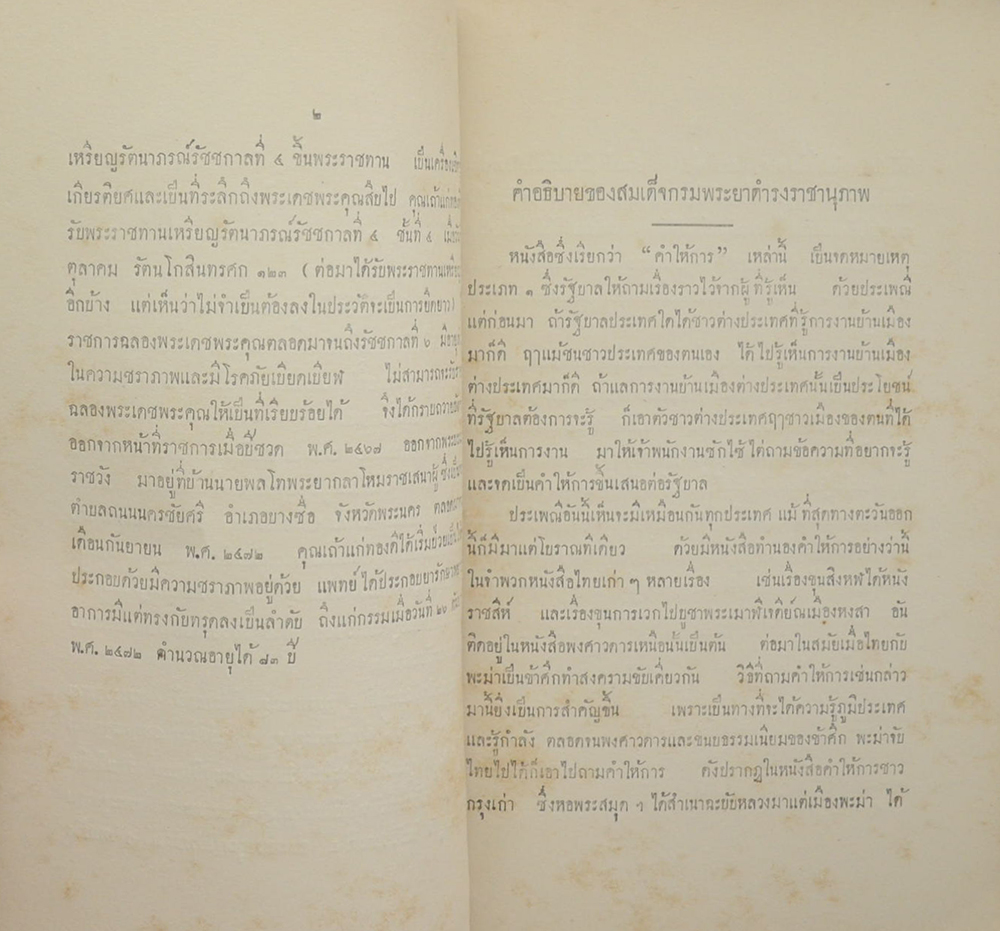 ๒
เหรียญรัตนาภรณ์รัชชกาลที่ ๕ ขึ้นพระราชทาน เป็น
เกียรติยศและเป็นที่ระลึกถึงพระเดชพระคุณสืบไป คุณเถ้าแก่
รับพระราชทานเหรียญรัตนาภรณ์รัชชกาลที่ ๕ ชั้นที่ ๔
ตุลาคม รัตนโกสินทรศก ๑๒๓ ( ต่อมาได้รับพระราชทาน
อีกบ้าง แต่เห็นว่าไม่จำเป็นต้องลงในประวัติจะเป็นการยืดยาว)
ราชการฉลองพระเดชพระคุณตลอดมาจนถึงรัชชกาลที่ ๖
ในความชราภาพและมีโรคภัยเบียดเบียฬ ไม่สามารถจะ
ฉลองพระเดชพระคุณให้เป็นที่เรียบร้อยได้ จึงได้กราบถวาย
ออกจากหน้าที่ราชการเมื่อปีชวด พ.ศ. ๒๔๖๗ ออกจาก
ราชวัง มาอยู่ที่บ้านนายพลโทพระยากลาโหมราชเสนาผู้
ตำบลถนนนครชัยศรี อำเภอบางซื่อ จังหวัดพระนคร
เดือนกันยายน พ.ศ. ๒๔๗๒ คุณเถ้าแก่ทองดีได้เริ่มป่วย
ประกอบด้วยมีความชราภาพอยู่ด้วย แพทย์ได้ประกอบยารักษา
อาการมีแต่ทรงกับทรุดลงเป็นลำดับ ถึงแก่กรรมเมื่อวันที่ ๒๖
พ.ศ. ๒๔๗๒ คำนวณอายุได้ ๘๓ ปี
คำอธิบายของสมเด็จกรมพระยาดำรงราชานุภาพ
หนังสือซึ่งเรียกว่า “คำให้การ” เหล่านี้ เป็นจดหมายเหตุ
ประเภท ๑ ซึ่งรัฐบาลให้ถามเรื่องราวไว้จากผู้ที่รู้เห็น ด้วยประเพณี
แต่ก่อนมา ถ้ารัฐบาลประเทศใดได้ชาวต่างประเทศที่รู้การงานบ้านเมือง
มาก็ดี ฤๅแม้ชนชาวประเทศของตนเอง ได้ไปรู้เห็นการงานบ้านเมือง
ต่างประเทศมาก็ดี ถ้าแลการงานบ้านเมืองต่างประเทศนั้นเป็นประโยชน์
ที่รัฐบาลต้องการจะรู้ ก็เอาตัวชาวต่างประเทศฤๅชาวเมืองของตนที่ได้
ไปรู้เห็นการงาน มาให้เจ้าพนักงานซักไซ้ไต่ถามข้อความที่อยากจะรู้
และจดเป็นคำให้การขึ้นเสนอต่อรัฐบาล
ประเพณีอันนี้เห็นจะมีเหมือนกันทุกประเทศ แม้ที่สุดทางตะวันออก
นี้ก็มีมาแต่โบราณทีเดียว ด้วยมีหนังสือทำนองคำให้การอย่างว่านี้
ในจำพวกหนังสือไทยเก่า ๆ หลายเรื่อง เช่นเรื่องขุนสิงหฬได้หนัง
ราชสีห์ และเรื่องขุนการเวกไปบูชาพระเมาฬีเจดีย์ณเมืองหงสา อัน
ติดอยู่ในหนังสือพงศาวดารเหนือนั้นเป็นต้น ต่อมาในสมัยเมื่อไทยกับ
พะม่าเป็นข้าศึกทำสงครามขับเคี่ยวกัน วิธีที่ถามคำให้การเช่นกล่าว
มานี้ยิ่งเป็นการสำคัญขึ้น เพราะเป็นทางที่จะได้ความรู้ภูมิประเทศ
และรู้กำลัง ตลอดจนพงศาวดารและขนบธรรมเนียมของข้าศึก พะม่าจับ
ไทยไปได้ก็เอาไปถามคำให้การ ดังปรากฏในหนังสือคำให้การชาว
กรุงเก่า ซึ่งหอพระสมุด ฯ ได้สำเนาฉะบับหลวงมาแต่เมืองพะม่า ได้